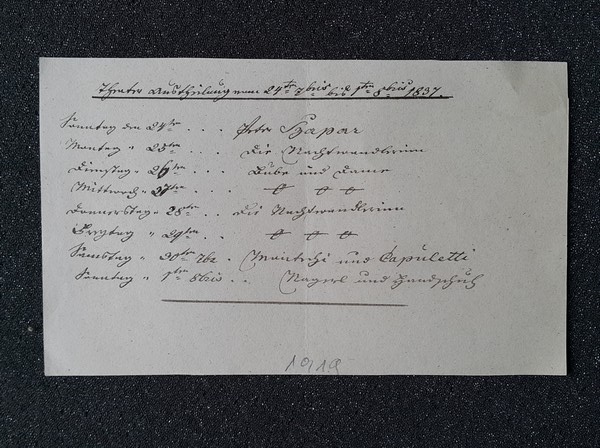 Theater Austheilung vom 24ten 7bris bis 1ten 8bris 1837.
Sonntag den 24te . . . Peter Szapar
Montag " 25te . . . Die Nachtwandlerinn
Dienstag " 26te . . . Bube und Dame
Mittwoch " 27te . . .
Donnerstag " 28te . . Die Nachtwandlerinn
Freytag " 29te . .
Samstag " 30te 7br . Montechi und Capuletti
Sonntag " 1ten 8bris . . Nagerl und Handschuh
1919